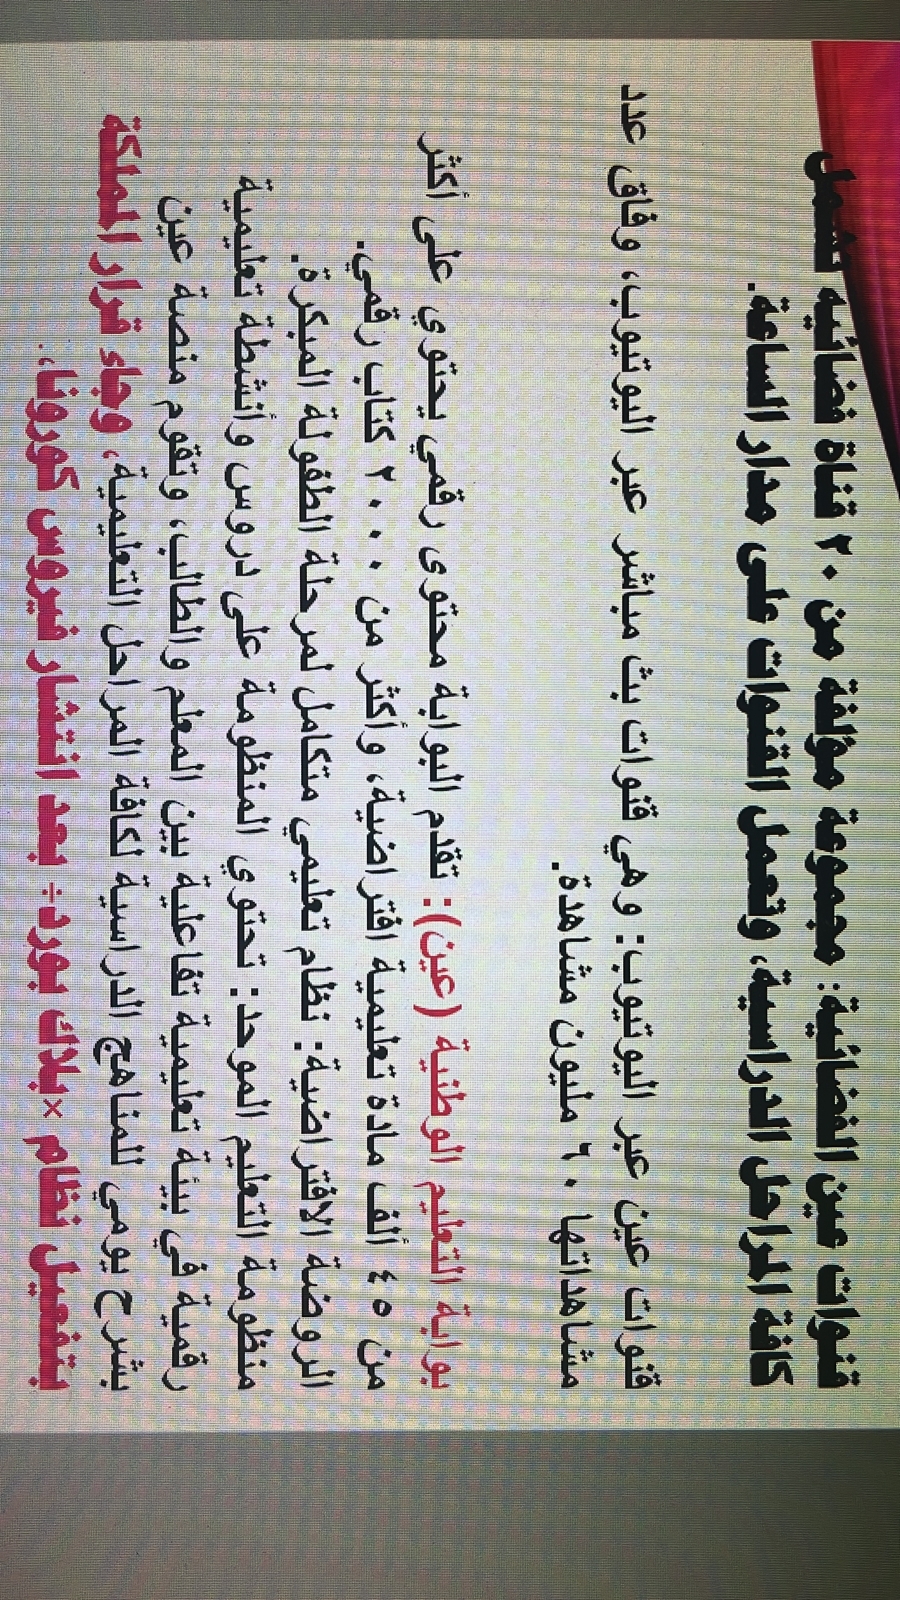 قنوات عين الفضائية: مجموعة مؤلفة من ٢٠ قناة فضائيه تشمل
كافة المراحل الدراسية، وتعمل القنوات على مدار الساعة.
قنوات عين عبر اليوتيوب: وهي قنوات بث مباشر عبر اليوتيوب، وفاق عدد
مشاهداتها ٦٠ مليون مشاهدة.
بوابة التعليم الوطنية (عين): تقدم البوابة محتوى رقمي يحتوي على أكثر
من ٤٥ ألف مادة تعليمية افتراضية، وأكثر من ٢٠٠٠ كتاب رقمي.
الروضة الافتراضية: نظام تعليمي متكامل لمرحلة الطفولة المبكرة.
منظومة التعليم الموحد: تحتوي المنظومة على دروس وأنشطة تعليمية
رقمية في بيئة تعليمية تفاعلية بين المعلم والطالب، وتقوم منصة عين
بشرح يومي للمناهج الدراسية لكافة المراحل التعليمية، وجاء قرار الملكة
بتفعيل نظام ×بلاك بورد÷ بعد انتشار فيروس كورونا،.